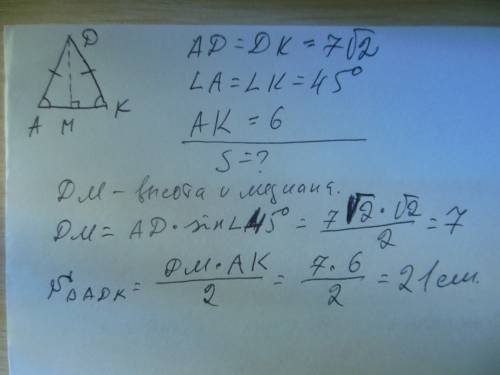 D
A M K
AD = DK = 7√2
∠A = ∠K = 45°
AK = 6
S = ?
DM – высота и медиана.
DM = AD · sin∠45° = 7√2 · √2 / 2 = 7
S△ADK = DM · AK / 2 = 7 · 6 / 2 = 21 см.